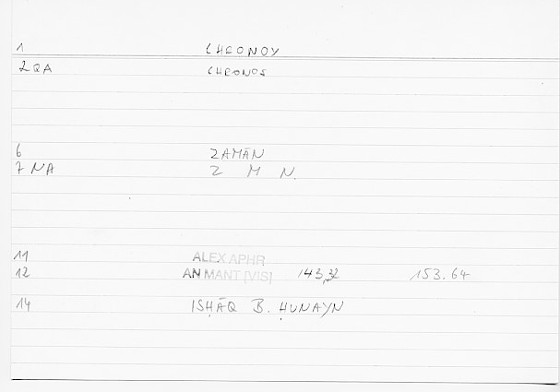 1 CHRONOY
2 QA CHRONOS
6 ZAMĀN
7 NA Z M N.
11 ALEX APHR
12 AN MANT [VIS] 143,32 153.64
14 ISḤĀQ B. ḤUNAYN